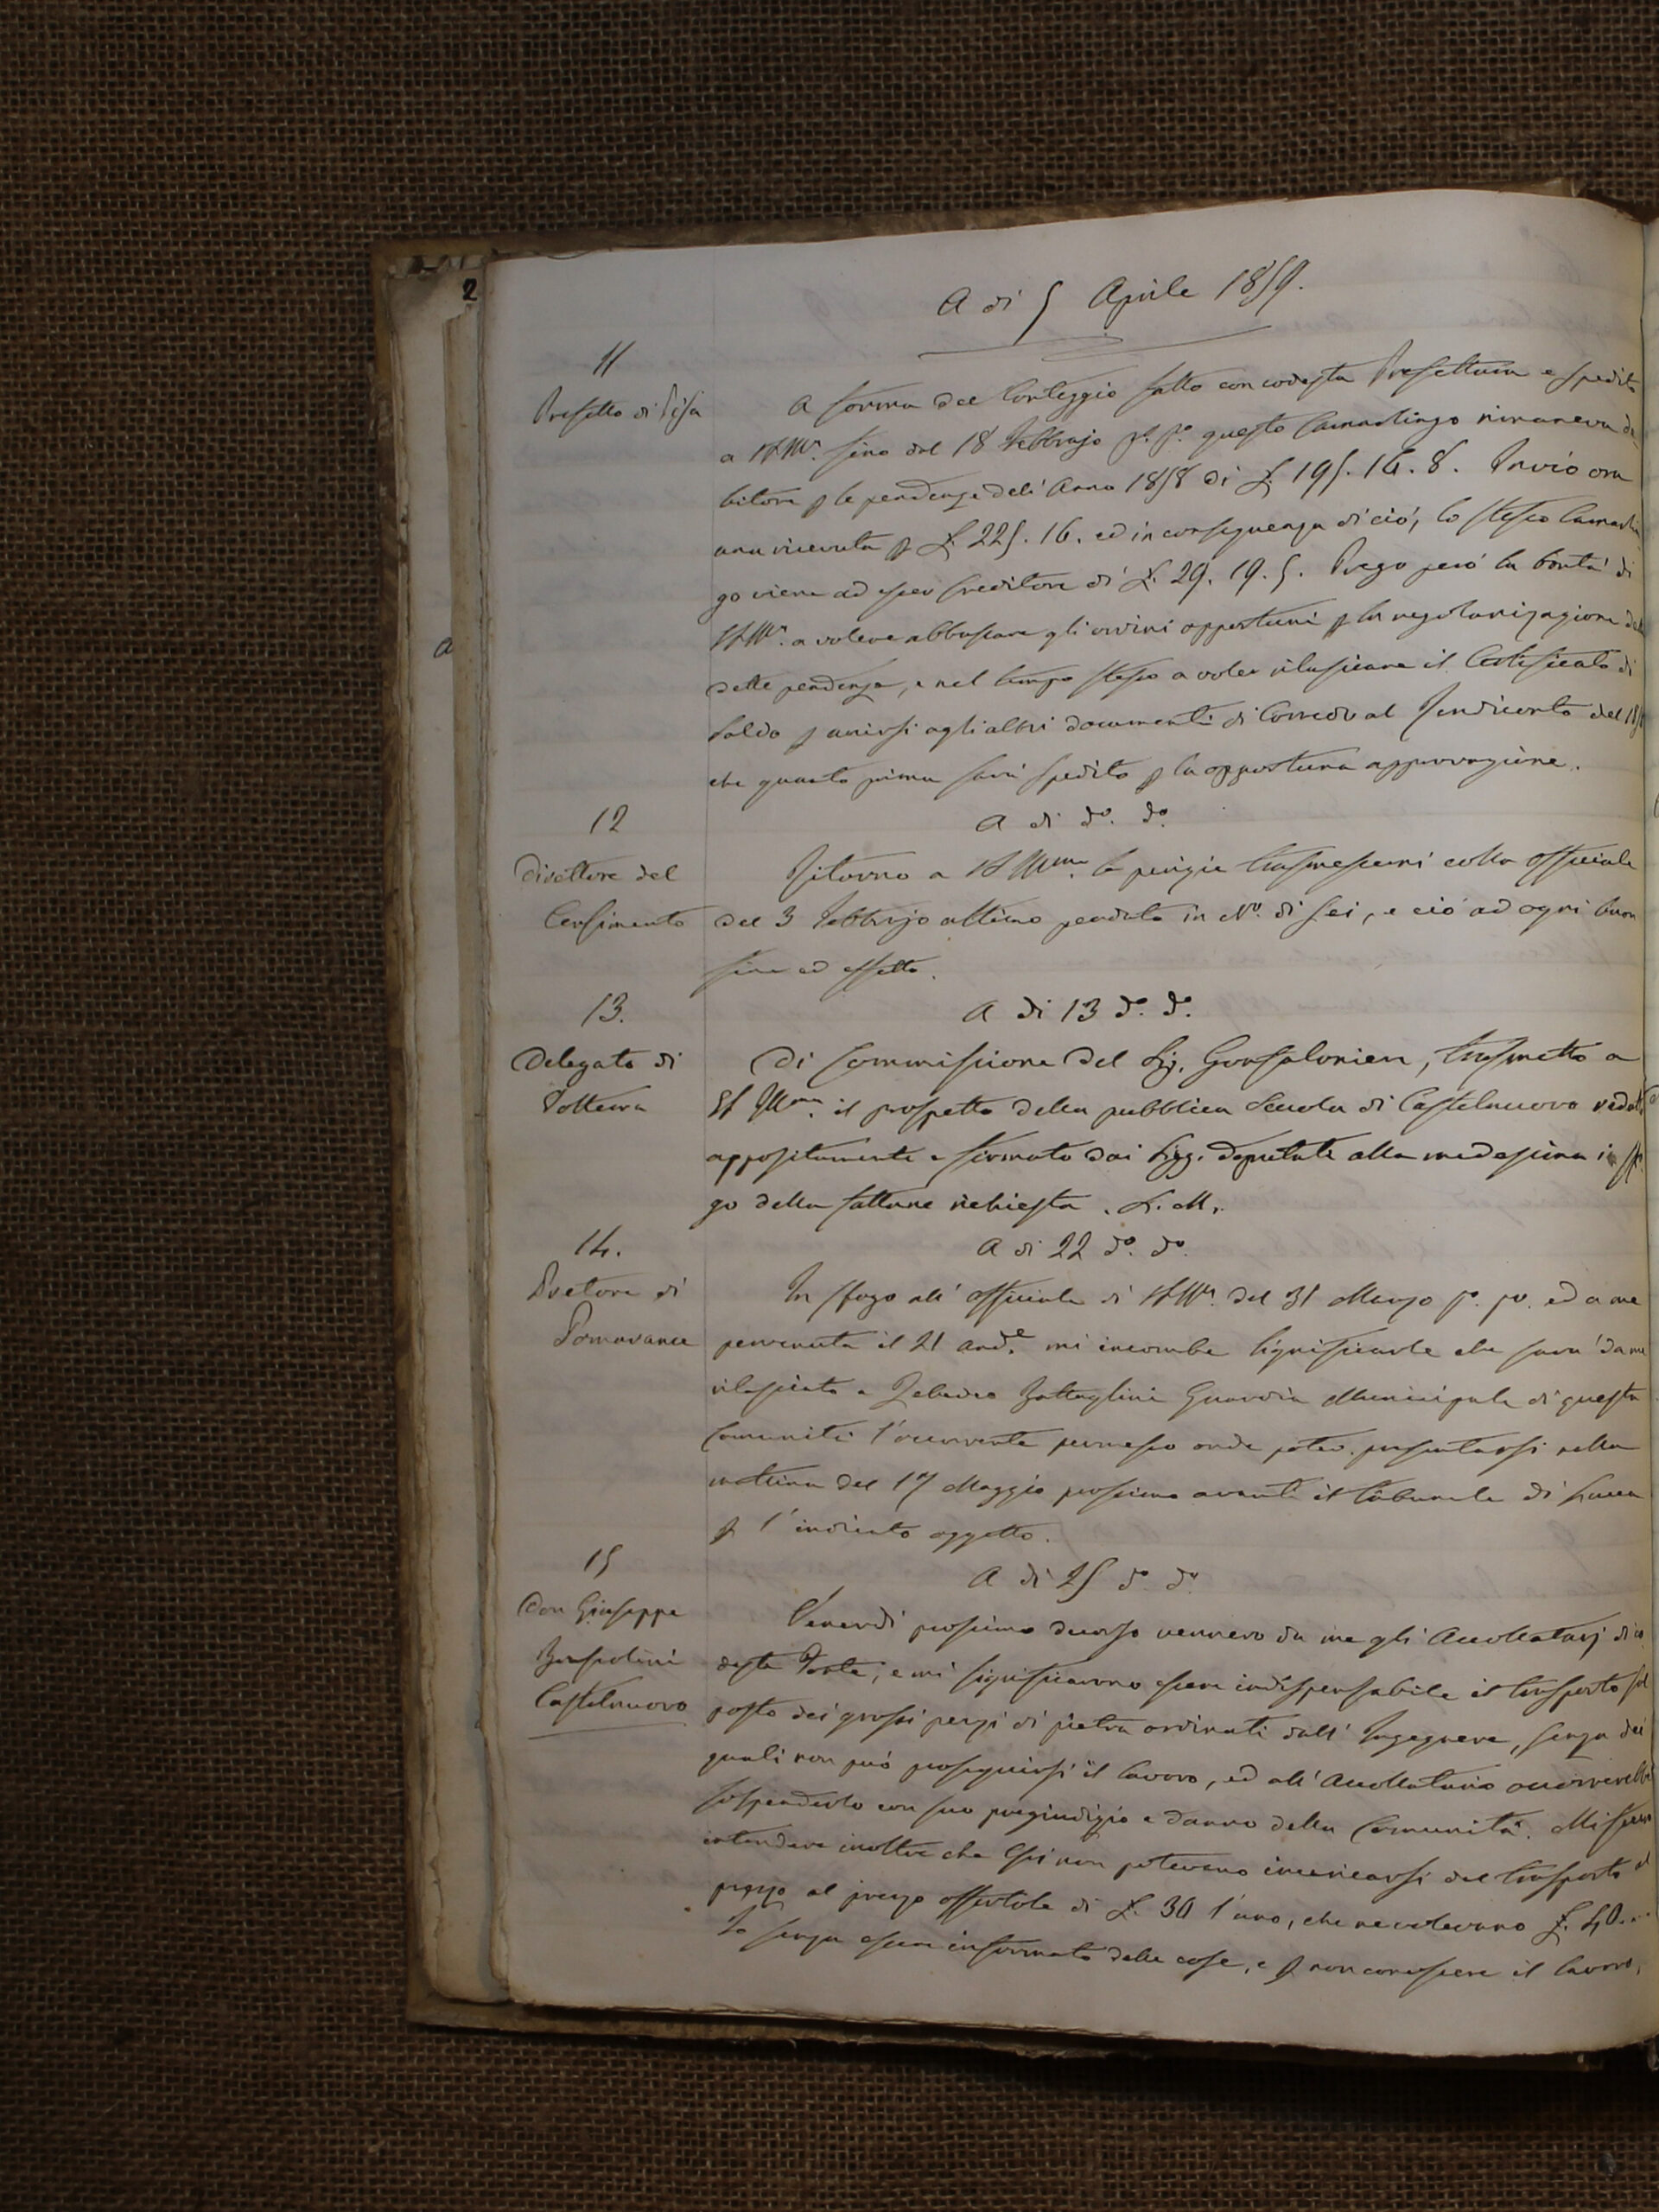 2
A di 5 Aprile 1859.
11
Prefetto di Pisa
A forma del Conteggio fatto con codesta Prefettura e spedito
a VS Ill. fino dal 18 Febbrajo p.º p.º questo Camarlingo rimaneva de
bitore p le pendenze dell' Anno 1858 di £ 195. 16. 8. Invio ora
una ricevuta p £. 225. 16. ed in conseguenza di ciò, lo stesso Camarlin
go viene ad esser Creditore di £. 29. 19. 5. Prego però la bontà di
VS Ill. a volere abbassare gli ordini opportuni p la regolarizazione
dette pendenze, e nel tempo stesso a voler rilasciare il Certificato di
Saldo p unirsi agli altri documenti di Corredo al Rendiconto del 1858
che quanto prima sarà spedito p la opportuna approvazione.
12
A di dº. dº.
Direttore del
Censimento
Ritorno a VS Ill.ma le perizie trasmessemi colla officiale
del 3 Febbrajo ultimo perduto in Nº. di sei, e ciò ad ogni buon
fine ed effetto.
13.
A di 13 dº. dº.
Delegato di
Volterra
Di Commissione del Sig. Gonfaloniere, trasmetto a
VS Ill.ma il prospetto della pubblica Scuola di Castelnuovo redatto
appositamente e firmato dai Sigg. deputati alla medesima in sfo
go della fattane richiesta. L. M.
14.
A di 22 dº. dº.
Pretore di
Pomarance
In sfogo all' officiale di VS Ill. del 31 Marzo p.º pº. ed a me
pervenuta il 21 and.e mi incombe significarle che sarà da me
rilasciato a Zebedeo Battaglini Guardia Municipale di questa
Comunità l'occorrente permesso onde poter presentarsi nella
mattina del 17 Maggio prossimo avanti il tribunale di Lucca
p l'indicato oggetto.
15
A di 25 dº. dº.
Don Giuseppe
Castelnuovo
Venerdì prossimo decorso vennero da me gli Accollatarj di co
desta Fonte, e mi significarono essere indispensabile il trasporto sul
posto dei grossi pezzi di pietra ordinati dall' Ingegnere, senza dei
quali non può proseguirsi il lavoro, ed all' Accollatario occorrerebbe
sospenderlo con suo pregiudizio e danno della Comunità. Mi fecero
intendere inoltre che Essi non potevano incaricarsi del trasporto
pezzo al prezzo offertole di £. 30 l'uno, che ne volevano £. 40...
Io senza essere informato delle cose, e p non conoscere il lavoro,